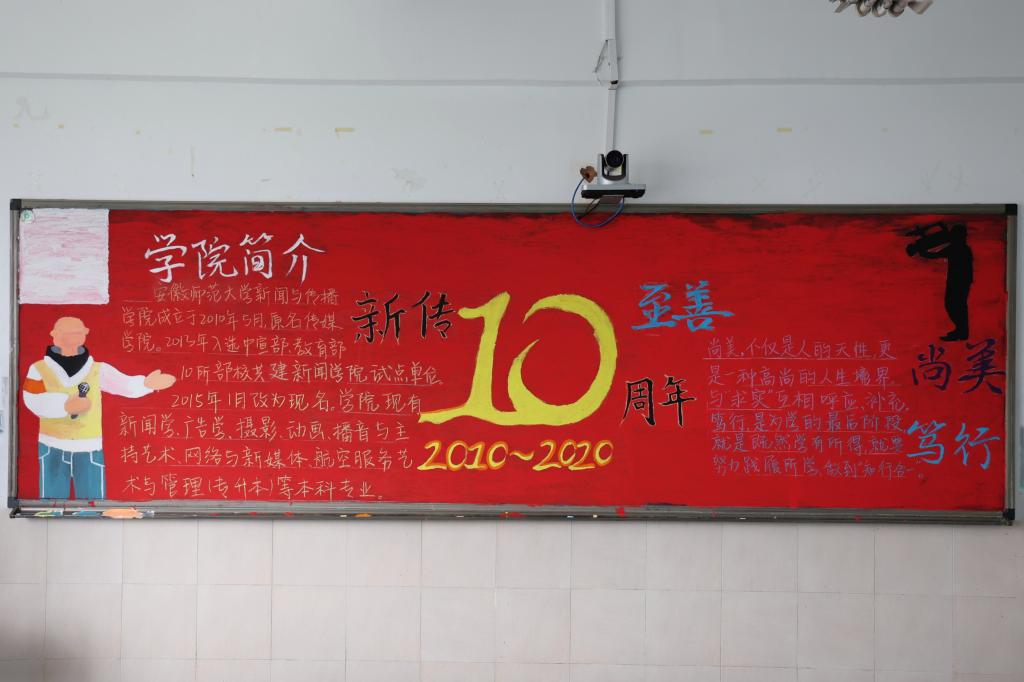 学院简介
安徽师范大学新闻与传播
学院成立于2010年5月,原名传媒
学院。2013年入选中宣部、教育部
10所部校共建新闻学院试点单位
2015年1月改为现名。学院现有
新闻学、广告学、摄影、动画、播音与主
持艺术、网络与新媒体、航空服务艺
术与管理(专升本)等本科专业。
新传
10
周年
2010~2020
至善
尚美
笃行
尚美,不仅是人的天性,更
是一种高尚的人生境界。
与“求实”互相呼应、补充。
笃行,是为学的最后阶段,
就是既然学有所得,就要
努力践履所学,做到“知行合一”。